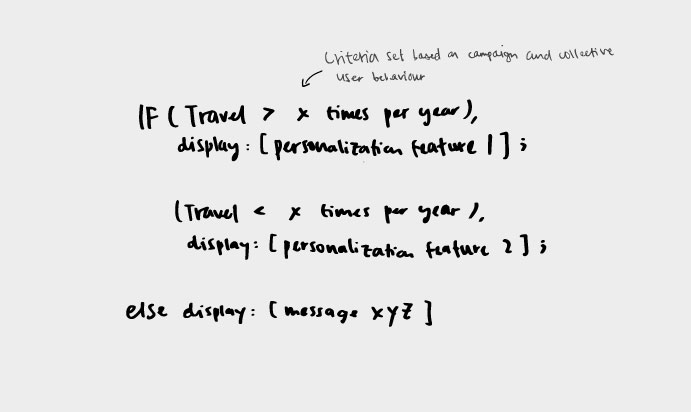 Criteria set based on campaign and collective
user behaviour
IF (Travel > x times per year),
display: [personalization feature 1];
(Travel < x times per year),
display: [personalization feature 2];
else display: [message xyz]